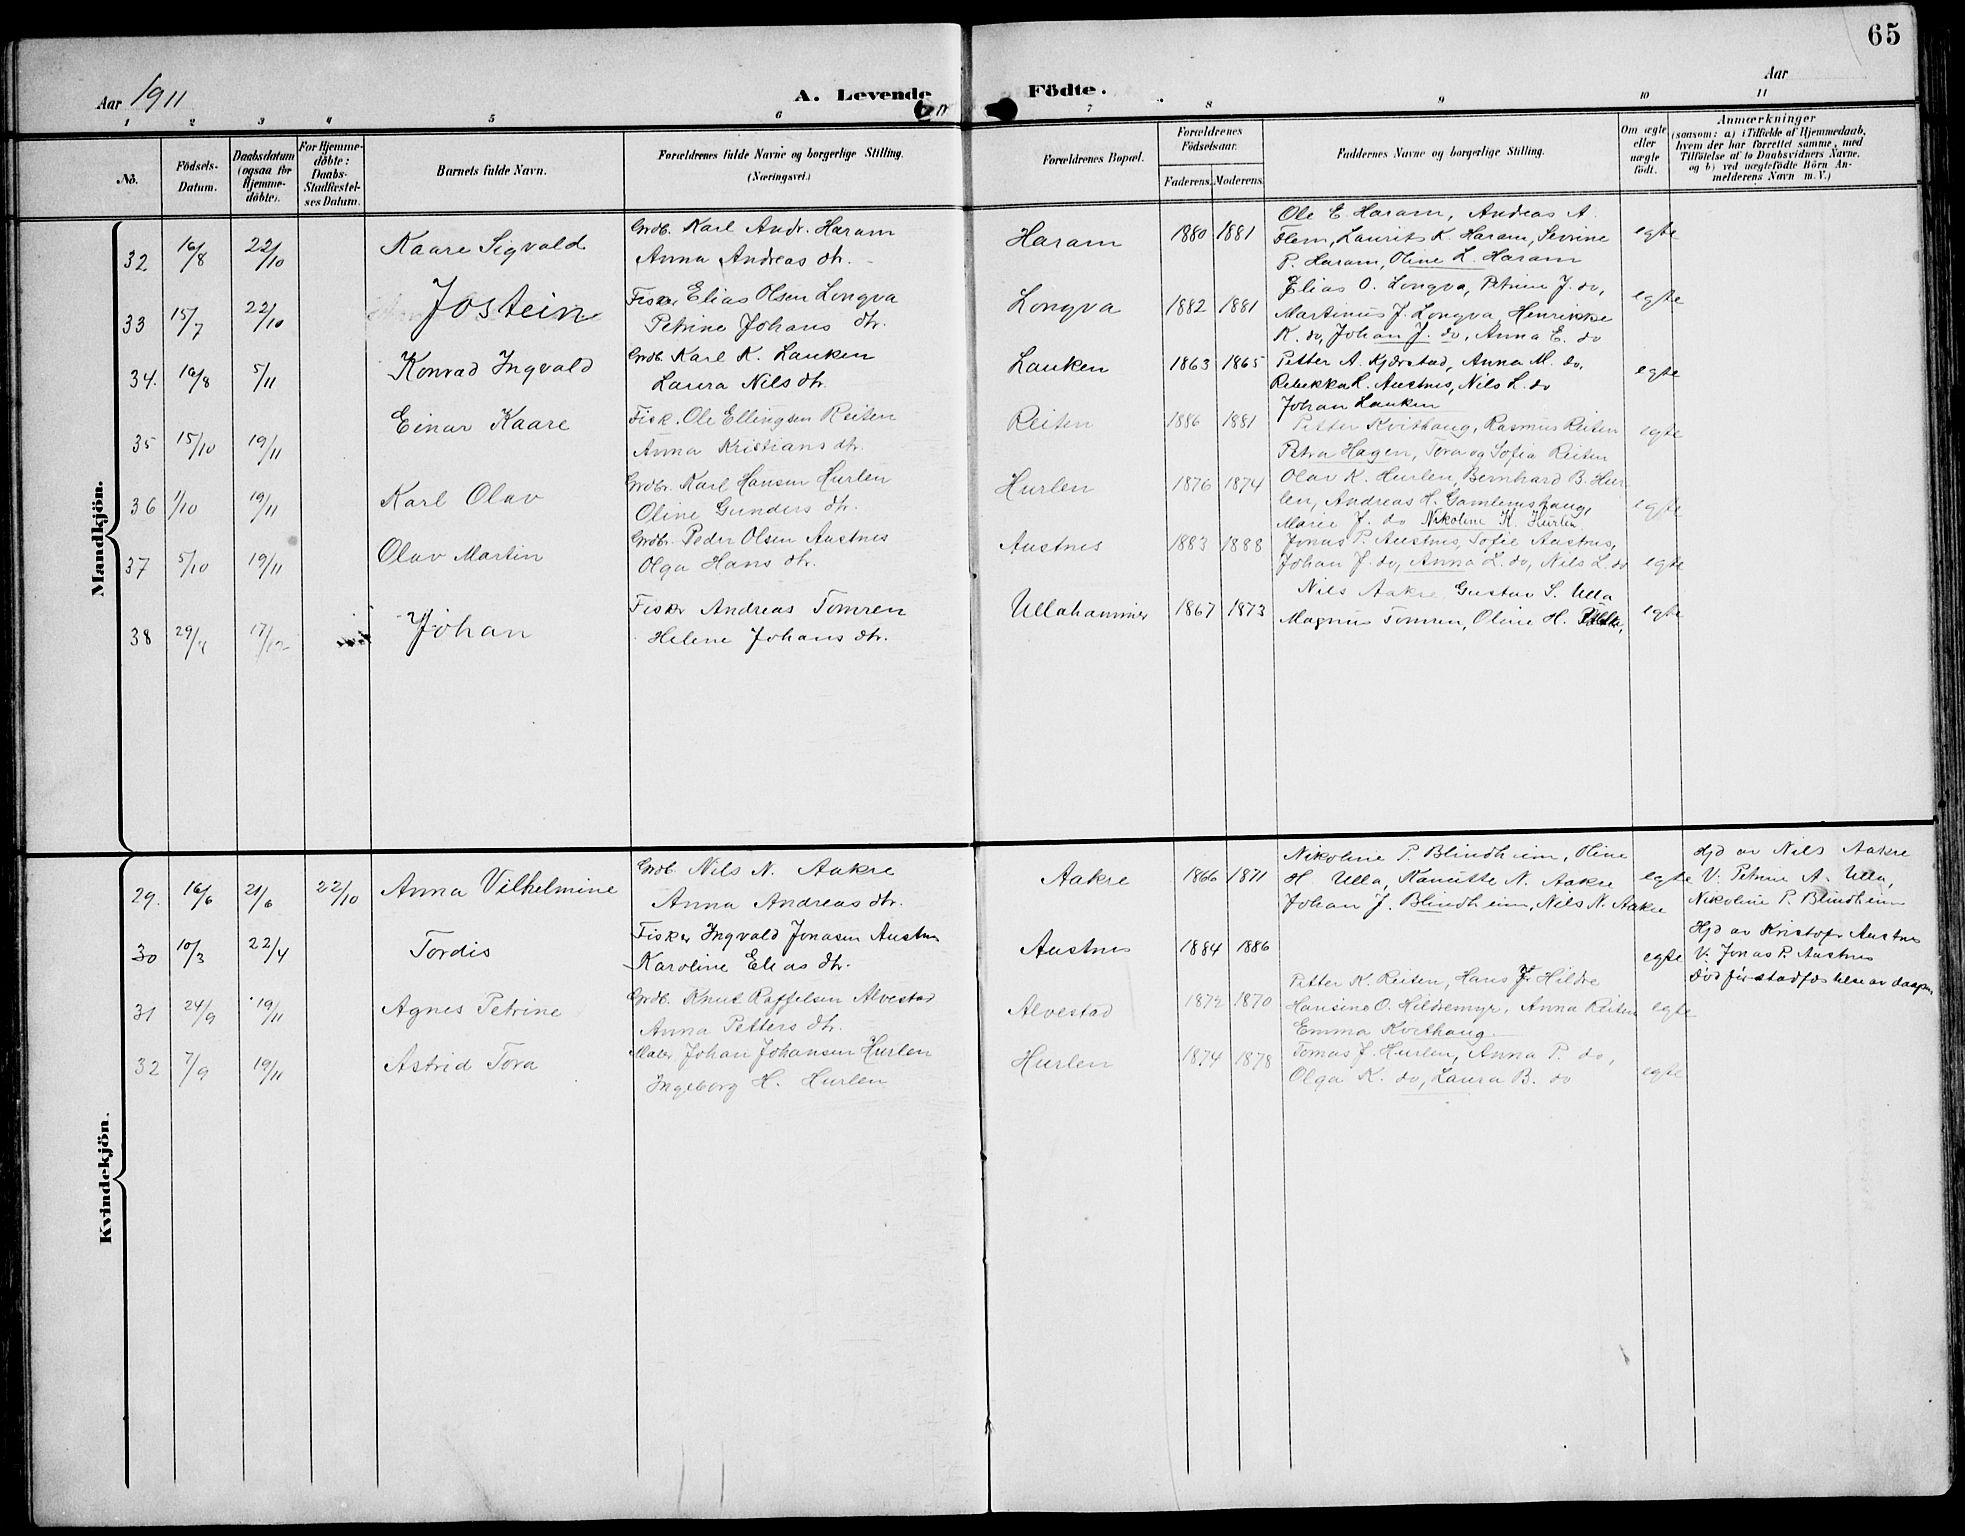 65
Aar 1911
A. Levende
Födte.
Aar
1 2 3 4 5 6 7 8 9 10 11
No.
Födsels-
Datum.
Daabsdatum
(ogsaa for
Hjemme-
döbte).
For Hjemme-
döbte:
Daabs-
Stadfæstel-
ses Datum.
Barnets fulde Navn.
Forældrenes fulde Navne og borgerlige Stilling.
(Næringsvei.)
Forældrenes Bopæl.
Forældrenes
Födselsaar.
Faderens. Moderens.
Faddernes Navne og borgerlige Stilling.
Om ægte
eller
uægte
födt.
Anmærkninger
(saasom: a) i Tilfælde af Hjemmedaab,
hvem der har forrettet samme, med
Tilföielse af to Daabsvidners Navne,
og b) ved uægtefödte Börn An-
melderens Navn m. V.)
Mandkjön.
32 16/8 22/10 Kaare Sigvald
Grdb. Karl Andr. Haram
Anna Andreas dtr.
Haram 1880 1881
Ole E. Haram, Andreas A.
Flem, Laurits K. Haram, Sevrine
P. Haram, Oline L. Haram
egte
33 15/7 22/10 Jostein
Fisker Elias Olsen Longva
Petrine Johans dtr.
Longva 1882 1881
Elias O. Longva, Petrine J. do,
Martinus J. Longva, Henrikke
K. do, Johan J. do, Anna E. do
egte
34. 16/8 5/11 Konrad Ingvald
Grdb. Karl K. Lauken
Laura Nils dtr.
Lauken 1863 1865
Petter A. Kjærstad, Anna M. do,
Rebekka L. Austnes, Nils L. do
Johan Lauken
egte
35 15/10 19/11 Einar Kaare
Fisk. Ole Ellingsen Reiten
Anna Kristians dtr.
Reiten 1886 1881
Petter Kvithaug, Rasmus Reiten
Petra Hagen, Tora og Sofia Reiten
egte
36 1/10 19/11 Karl Olav
Grdbr. Karl Hansen Hurlen
Oline Gunders dtr.
Hurlen 1876 1874
Olav K. Hurlen, Bernhard B. Hur
len, Andreas H. Gamlemshaug,
Marie J. do Nikoline K. Hurlen
egte
37 5/10 19/11 Olav Martin
Grdbr. Peder Olsen Austnes
Olga Hans dtr.
Austnes 1883 1888
Jonas P. Austnes, Sofie Austnes,
Johan J. do, Anna L. do, Nils L. do
egte
38 29/ 17/12 Johan
Fisker Andreas Tomren
Helene Johans dtr.
Ullahammer 1867 1873
Nils Aakre, Gustav S. Ulla
Magnus Tomren, Oline H. Ulla,
egte
Kvindekjön.
29. 16/6 21/6 22/10 Anna Vilhelmine
Grdb. Nils N. Aakre
Anna Andreas dtr.
Aakre 1866 1871
Nikoline P. Blindheim, Oline
H. Ulla, Nanutte N. Aakre
Johan J. Blindheim, Nils N. Aakre
egte
Hjd av Nils Aakre
V: Petrine A. Ulla,
Nikoline P. Blindheim
30 10/3 22/4 Tordis
Fisker Ingvald Jonasen Austnes
Karoline Elias dtr.
Austnes 1884 1886
egte
Hjd av Kristofr Austnes
V: Jonas P. Austnes
Död för stadfæstelse av daapen
31 24/9 19/11 Agnes Petrine
Grdb. Knut Raffelsen Alvestad
Anna Petters dtr.
Alvestad 1872 1870
Petter K. Reiten, Hans J. Hildre
Hansine O. Hildremyr, Anna Reiten
Emma Kvithaug
egte
32 7/9 19/11 Astrid Tora
Maler Johan Johansen Hurlen
Ingeborg H. Hurlen
Hurlen 1874 1878
Tomas J. Hurlen, Anna P. do,
Olga K. do, Laura B. do
egte